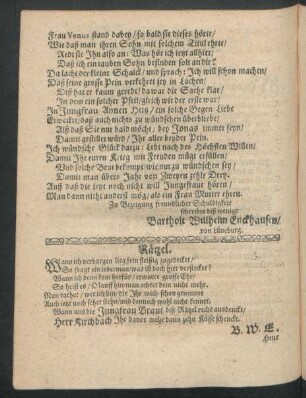 Frau Venus stand dabey / so bald sie dieses hörte /
Wie daß man ihren Sohn mit solchem Titul ehrte /
Redt sie Ihn also an: Was hör ich jetzt allhier /
Daß ich ein tauben Sohn besinden solt an dir?
Da lacht der kleine Schalck / und sprach: Ich wil schon machen /
Daß seine grosse Pein verkehret sey in Lachen /
Diß hat er kaum geredt / da war die Sache klar /
In dem ein solcher Pfeil / gleich wie der erste war /
In Jungfrau Annen Hertz / ein solche Gegen Liebe
Erweckte / daß auch nichts zu wündschen überbliebe /
Alß daß Sie nur bald möcht / bey Jonas immer seyn /
Damit gestillet würd / Ihr aller beyder Pein.
Ich wündsche Glück darzu: Lebt nach des Höchsten Willen /
Damit Ihr euren Krieg mit Freuden mügt erfüllen /
Und solche Beut bekompt wie nun zu wündschen sey /
Damit man übers Jahr von Zweyen zehle Drey.
Auff daß die jetzt noch nicht will Jungfrau hören /
Man dann nicht anders müg / als ein Frau Mutter ehren.
Zu Bezeigung freundlicher Schuldigkeit
schreibes diß wenige
Bartholt Wilhelm Enckhausen /
von Lüneburg.
Rätzel.
Wann ich verborgen lieg sein fleißig zugedecket /
So fragt ein jederman / was ist doch hier verstecket?
Wann ich denn kom herfür / erwarte grosse Ehr /
So heist es / O lauff hin / man achtet dein nicht mehr.
Nun rathet / wer ich bin / die Ihr mich schon gewonnen
Auch jetzt noch sehet stehn / und dennoch wohl nicht kennet.
Wann uns die Jungfrau Braut diß Rätzel recht ausdeuckt /
Herr Kirchbach Ihr davor willig dann zehn Küsse schenckt.
B. W. E.
Heut